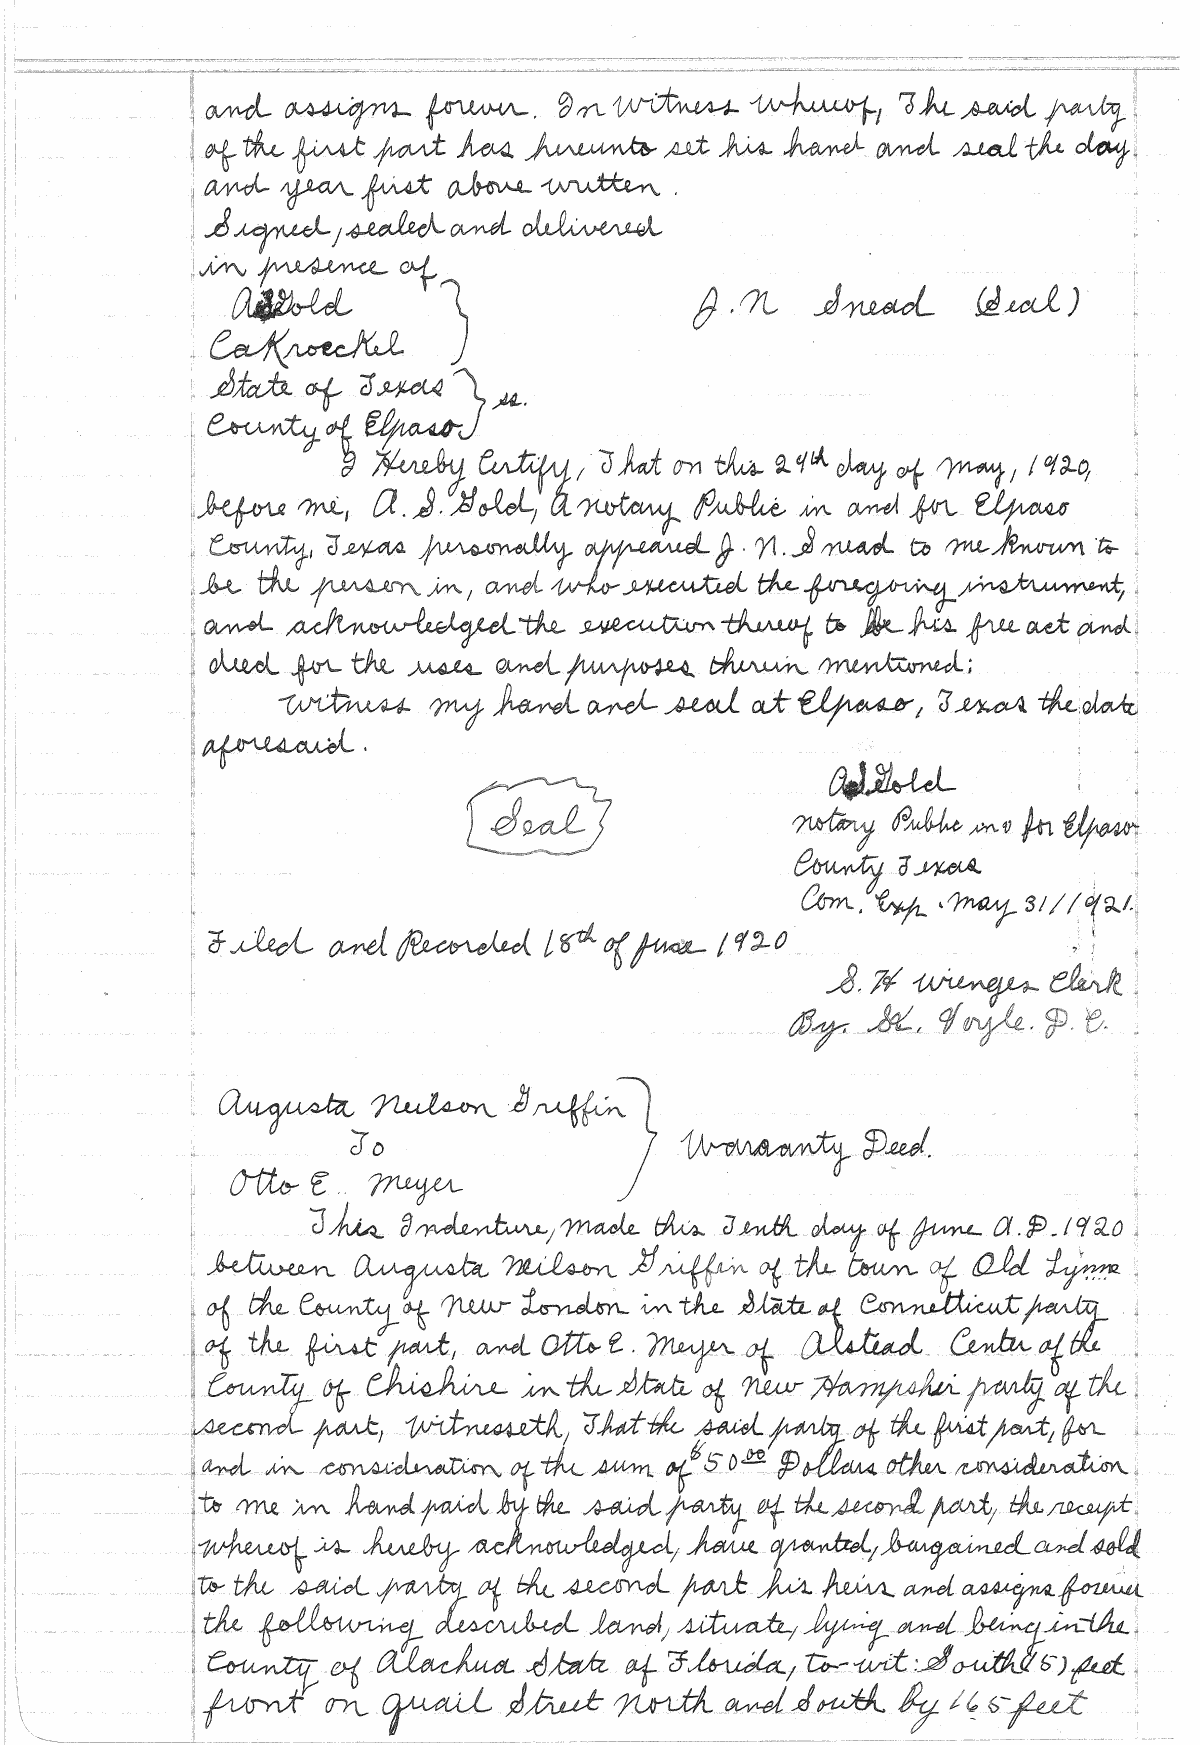 and assigns forever. In Witness Whereof, The said party
of the first part has hereunto set his hand and seal the day
and year first above written.
Signed, sealed and delivered
in presence of
A S Gold
Ca Kroeckel
J. N Snead (Seal)
State of Texas
County of Elpaso ss.
I Hereby Certify, That on this 29th day of May, 1920,
before me, A. S. Gold, A notary Public in and for Elpaso
County, Texas personally appeared J. N. Snead to me known to
be the person in, and who executed the foregoing instrument,
and acknowledged the execution thereof to be his free act and
deed for the uses and purposes therein mentioned:
Witness my hand and seal at Elpaso, Texas the date
aforesaid.
Seal
A S Gold
notary Public in & for Elpaso
County Texas
Com. Exp. May 31/1921.
Filed and Recorded 18th of June 1920
S. H Wienges Clerk
By. St. Voyle. D. C.
Augusta Neilson Griffin
To
Otto E. Meyer
Warranty Deed.
This Indenture, Made this Tenth day of June A.D. 1920
between Augusta Neilson Griffin of the town of Old Lyme
of the County of New London in the State of Connetticut party
of the first part, and Otto E. Meyer of Alstead Center of the
County of Chishire in the State of New Hampsheir party of the
second part, Witnesseth, That the said party of the first part, for
and in consideration of the sum of $50.00 Dollars other consideration
to me in hand paid by the said party of the second part, the receipt
whereof is hereby acknowledged, have granted, bargained and sold
to the said party of the second part his heirs and assigns forever
the following described land, situate, lying and being in the
County of Alachua State of Florida, to-wit: South feet
front on Quail Street North and South by 165 feet